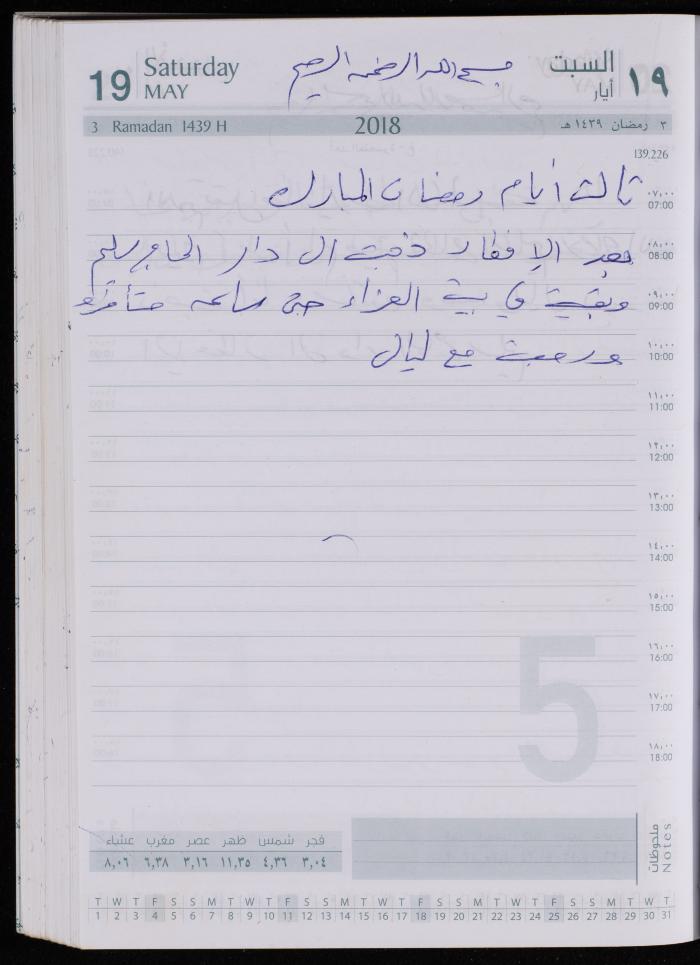 19 Saturday MAY
بسم الله الرحمن الرحيم
السبت ١٩ أيار
3 Ramadan 1439 H 2018 ٣ رمضان ١٤٣٩ هـ
139.226
ثالث أيام رمضان المبارك
بعد الإفطار ذهبت الى دار الحاج سليم
وبقيت في بيت العزاء حتى ساعه متأخره
ورجعت مع ليال
٠٧,٠٠
07:00
٠٨,٠٠
08:00
٠٩,٠٠
09:00
١٠,٠٠
10:00
١١,٠٠
11:00
١٢,٠٠
12:00
١٣,٠٠
13:00
١٤,٠٠
14:00
١٥,٠٠
15:00
١٦,٠٠
16:00
١٧,٠٠
17:00
١٨,٠٠
18:00
5
فجر شمس ظهر عصر مغرب عشاء
٣,٠٤ ٤,٣٦ ١١,٣٥ ٣,١٦ ٦,٣٨ ٨,٠٦
ملحوظات
Notes
T W T F S S M T W T F S S M T W T F S S M T W T F S S M T W T
1 2 3 4 5 6 7 8 9 10 11 12 13 14 15 16 17 18 19 20 21 22 23 24 25 26 27 28 29 30 31